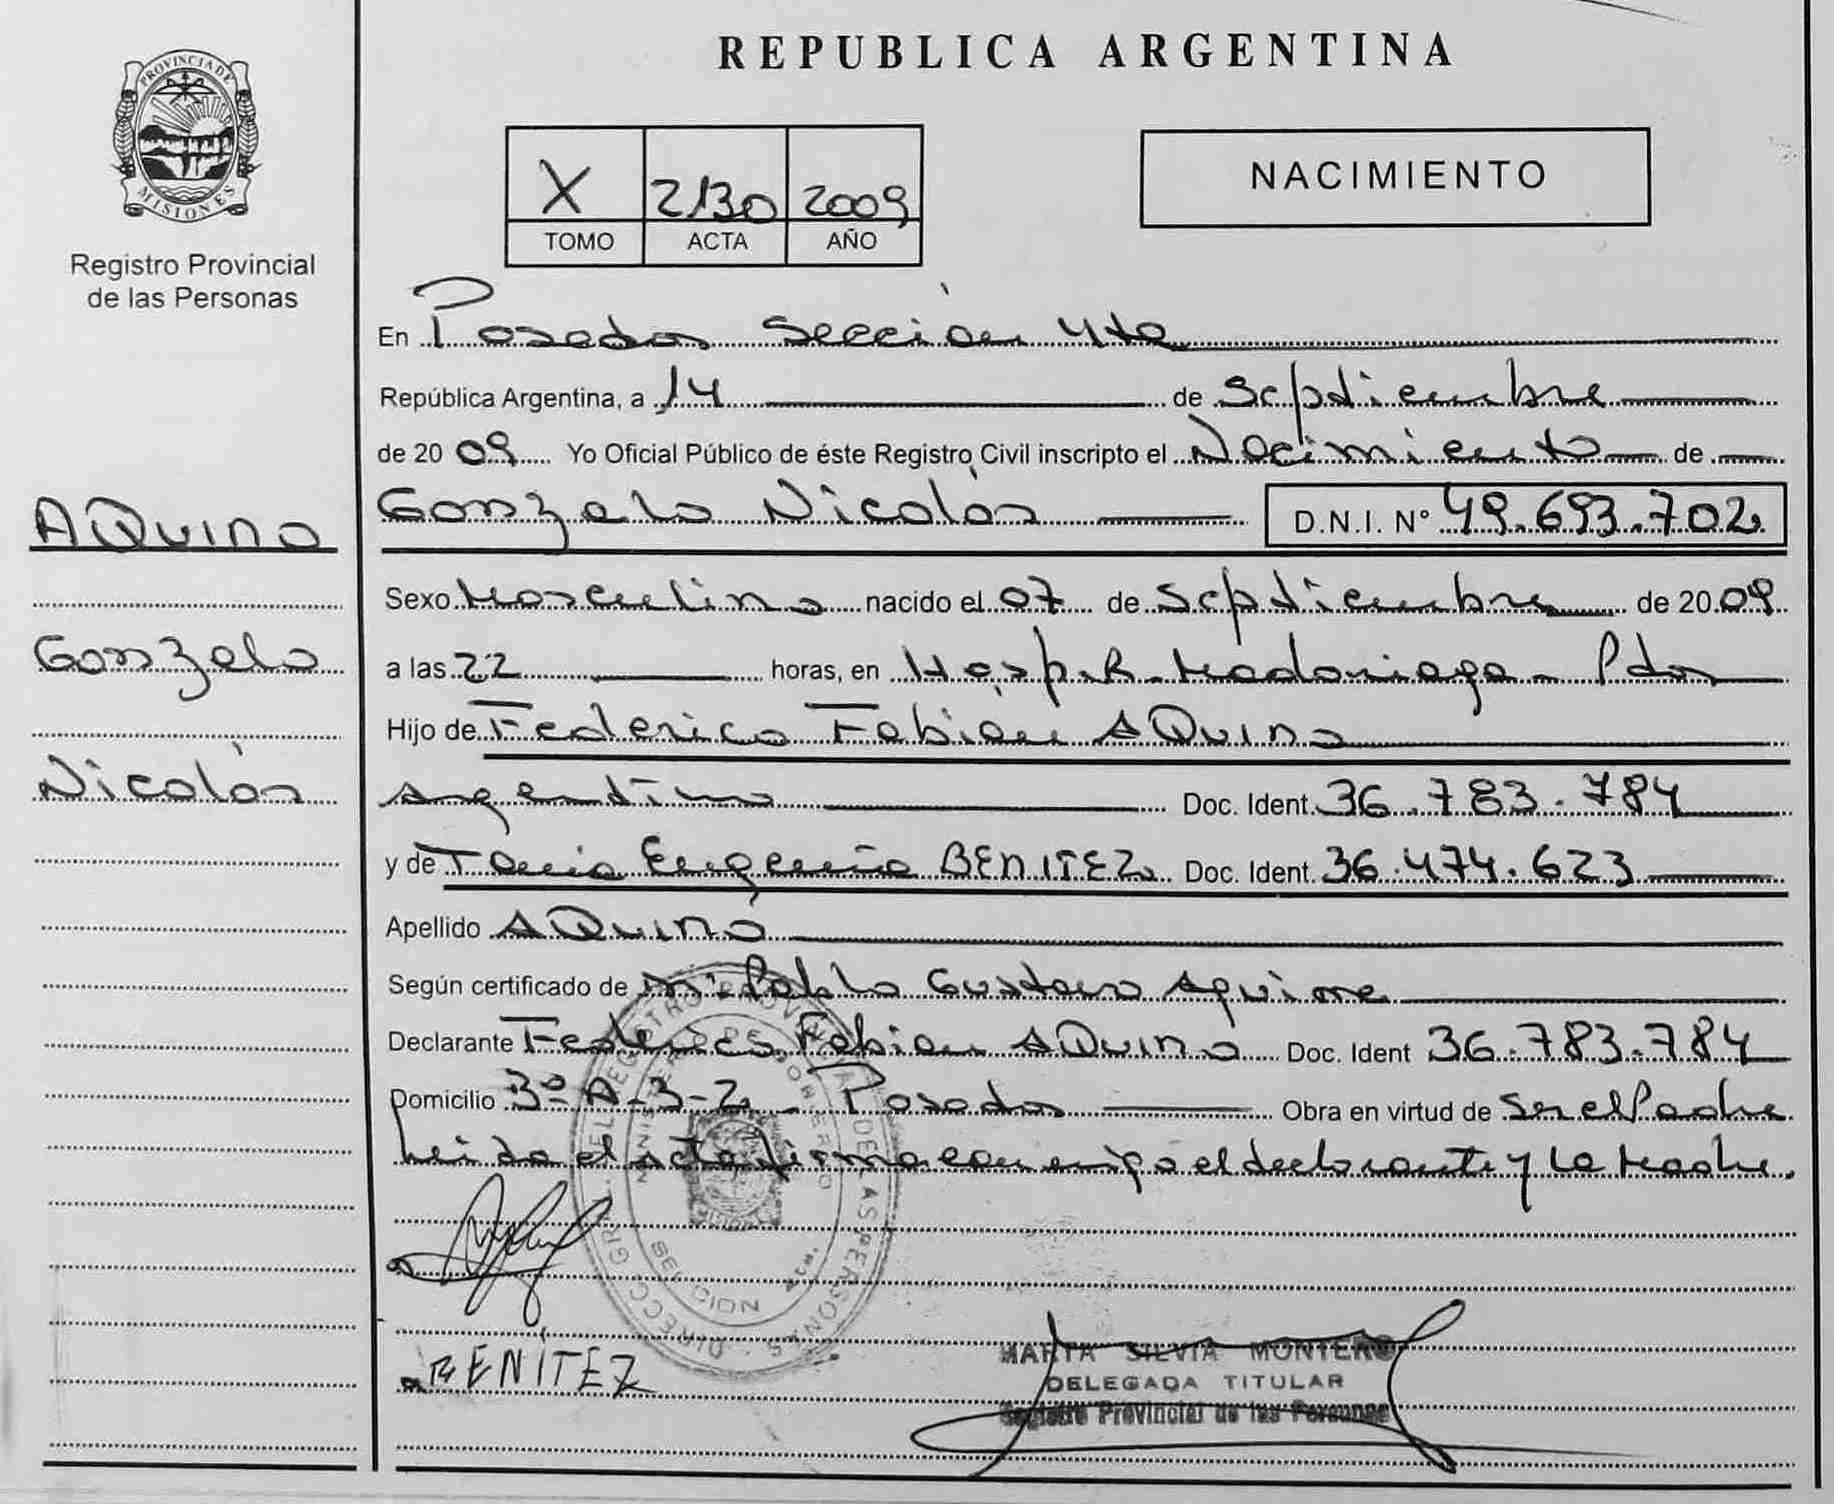 PROVINCIA DE
MISIONES
Registro Provincial
de las Personas
REPUBLICA ARGENTINA
X 2130 2009
TOMO ACTA AÑO
NACIMIENTO
En Posadas Sección 4ta
República Argentina, a 14 de Septiembre
de 2009 Yo Oficial Público de éste Registro Civil inscripto el Nacimiento de
Gonzalo Nicolás D.N.I. Nº 49.693.702
AQUINO
Sexo Masculino nacido el 07 de Septiembre de 2009
Gonzalo
a las 22 horas, en Hosp. R. Madariaga - Pdas
Hijo de Federico Fabián AQUINO
Nicolás
Argentino Doc. Ident. 36.783.784
y de Tania Eugenia BENITEZ Doc. Ident. 36.474.623
Apellido AQUINO
Según certificado de Pablo Gustavo Aguirre
Declarante Federico Fabian AQUINO Doc. Ident 36.783.784
Domicilio 3º-A-3-2 - Posadas Obra en virtud de ser el Padre
Leida el acta firma conmigo el declarante y la Madre.
BENÍTEZ
MARTA SILVIA MONTERO
DELEGADA TITULAR
Registro Provincial de las Personas